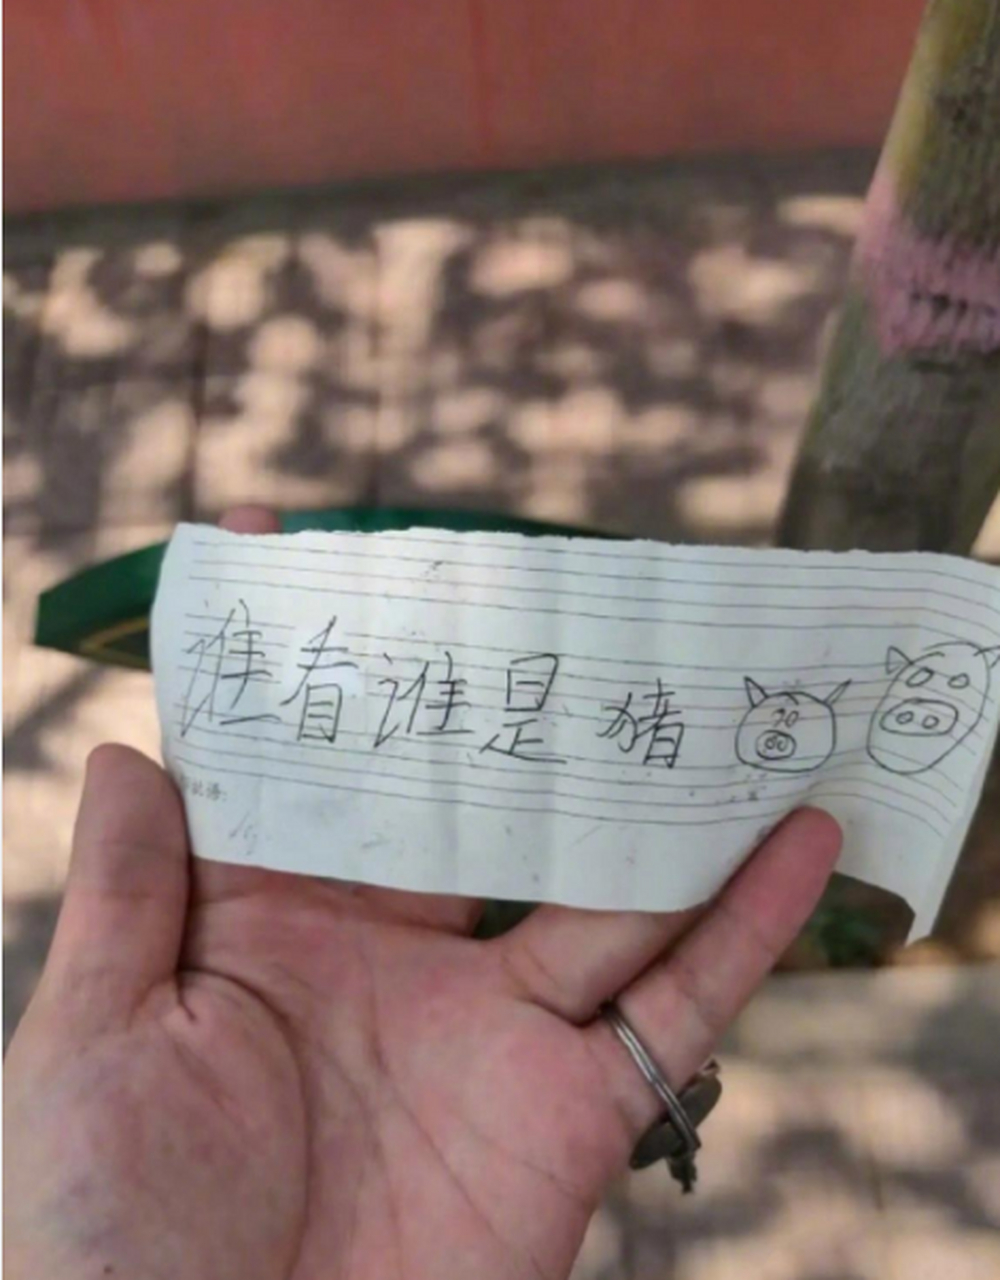 谁看谁是猪